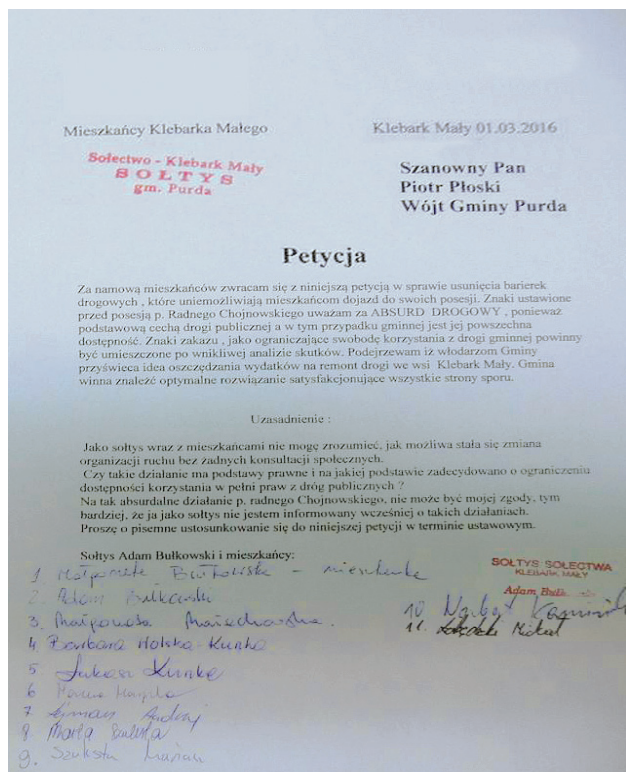 Mieszkańcy Klebarka Małego
Klebark Mały 01.03.2016
Sołectwo - Klebark Mały
SOŁTYS
gm. Purda
Szanowny Pan
Piotr Płoski
Wójt Gminy Purda
Petycja
Za namową mieszkańców zwracam się z niniejszą petycją w sprawie usunięcia barierek
drogowych , które uniemożliwiają mieszkańcom dojazd do swoich posesji. Znaki ustawione
przed posesją p. Radnego Chojnowskiego uważam za ABSURD DROGOWY , ponieważ
podstawową cechą drogi publicznej a w tym przypadku gminnej jest jej powszechna
dostępność. Znaki zakazu , jako ograniczające swobodę korzystania z drogi gminnej powinny
być umieszczone po wnikliwej analizie skutków. Podejrzewam iż włodarzom Gminy
przyświeca idea oszczędzania wydatków na remont drogi we wsi Klebark Mały. Gmina
winna znaleźć optymalne rozwiązanie satysfakcjonujące wszystkie strony sporu.
Uzasadnienie :
Jako sołtys wraz z mieszkańcami nie mogę zrozumieć, jak możliwa stała się zmiana
organizacji ruchu bez żadnych konsultacji społecznych.
Czy takie działanie ma podstawy prawne i na jakiej podstawie zadecydowano o ograniczeniu
dostępności korzystania w pełni praw z dróg publicznych ?
Na tak absurdalne działanie p. radnego Chojnowskiego, nie może być mojej zgody, tym
bardziej, że ja jako sołtys nie jestem informowany wcześniej o takich działaniach.
Proszę o pisemne ustosunkowanie się do niniejszej petycji w terminie ustawowym.
Sołtys Adam Bułkowski i mieszkańcy:
SOŁTYS SOŁECTWA
KLEBARK MAŁY
Adam Bułk
1. Małgorzata Bułkowska - mieszkanka
2. Adam Bułkowski
3. Małgorzata
4. Barbara Holska-Kunka
5 Łukasz Kunka
6
7 Andrzej
8 Marta
9.
10
11. Michał